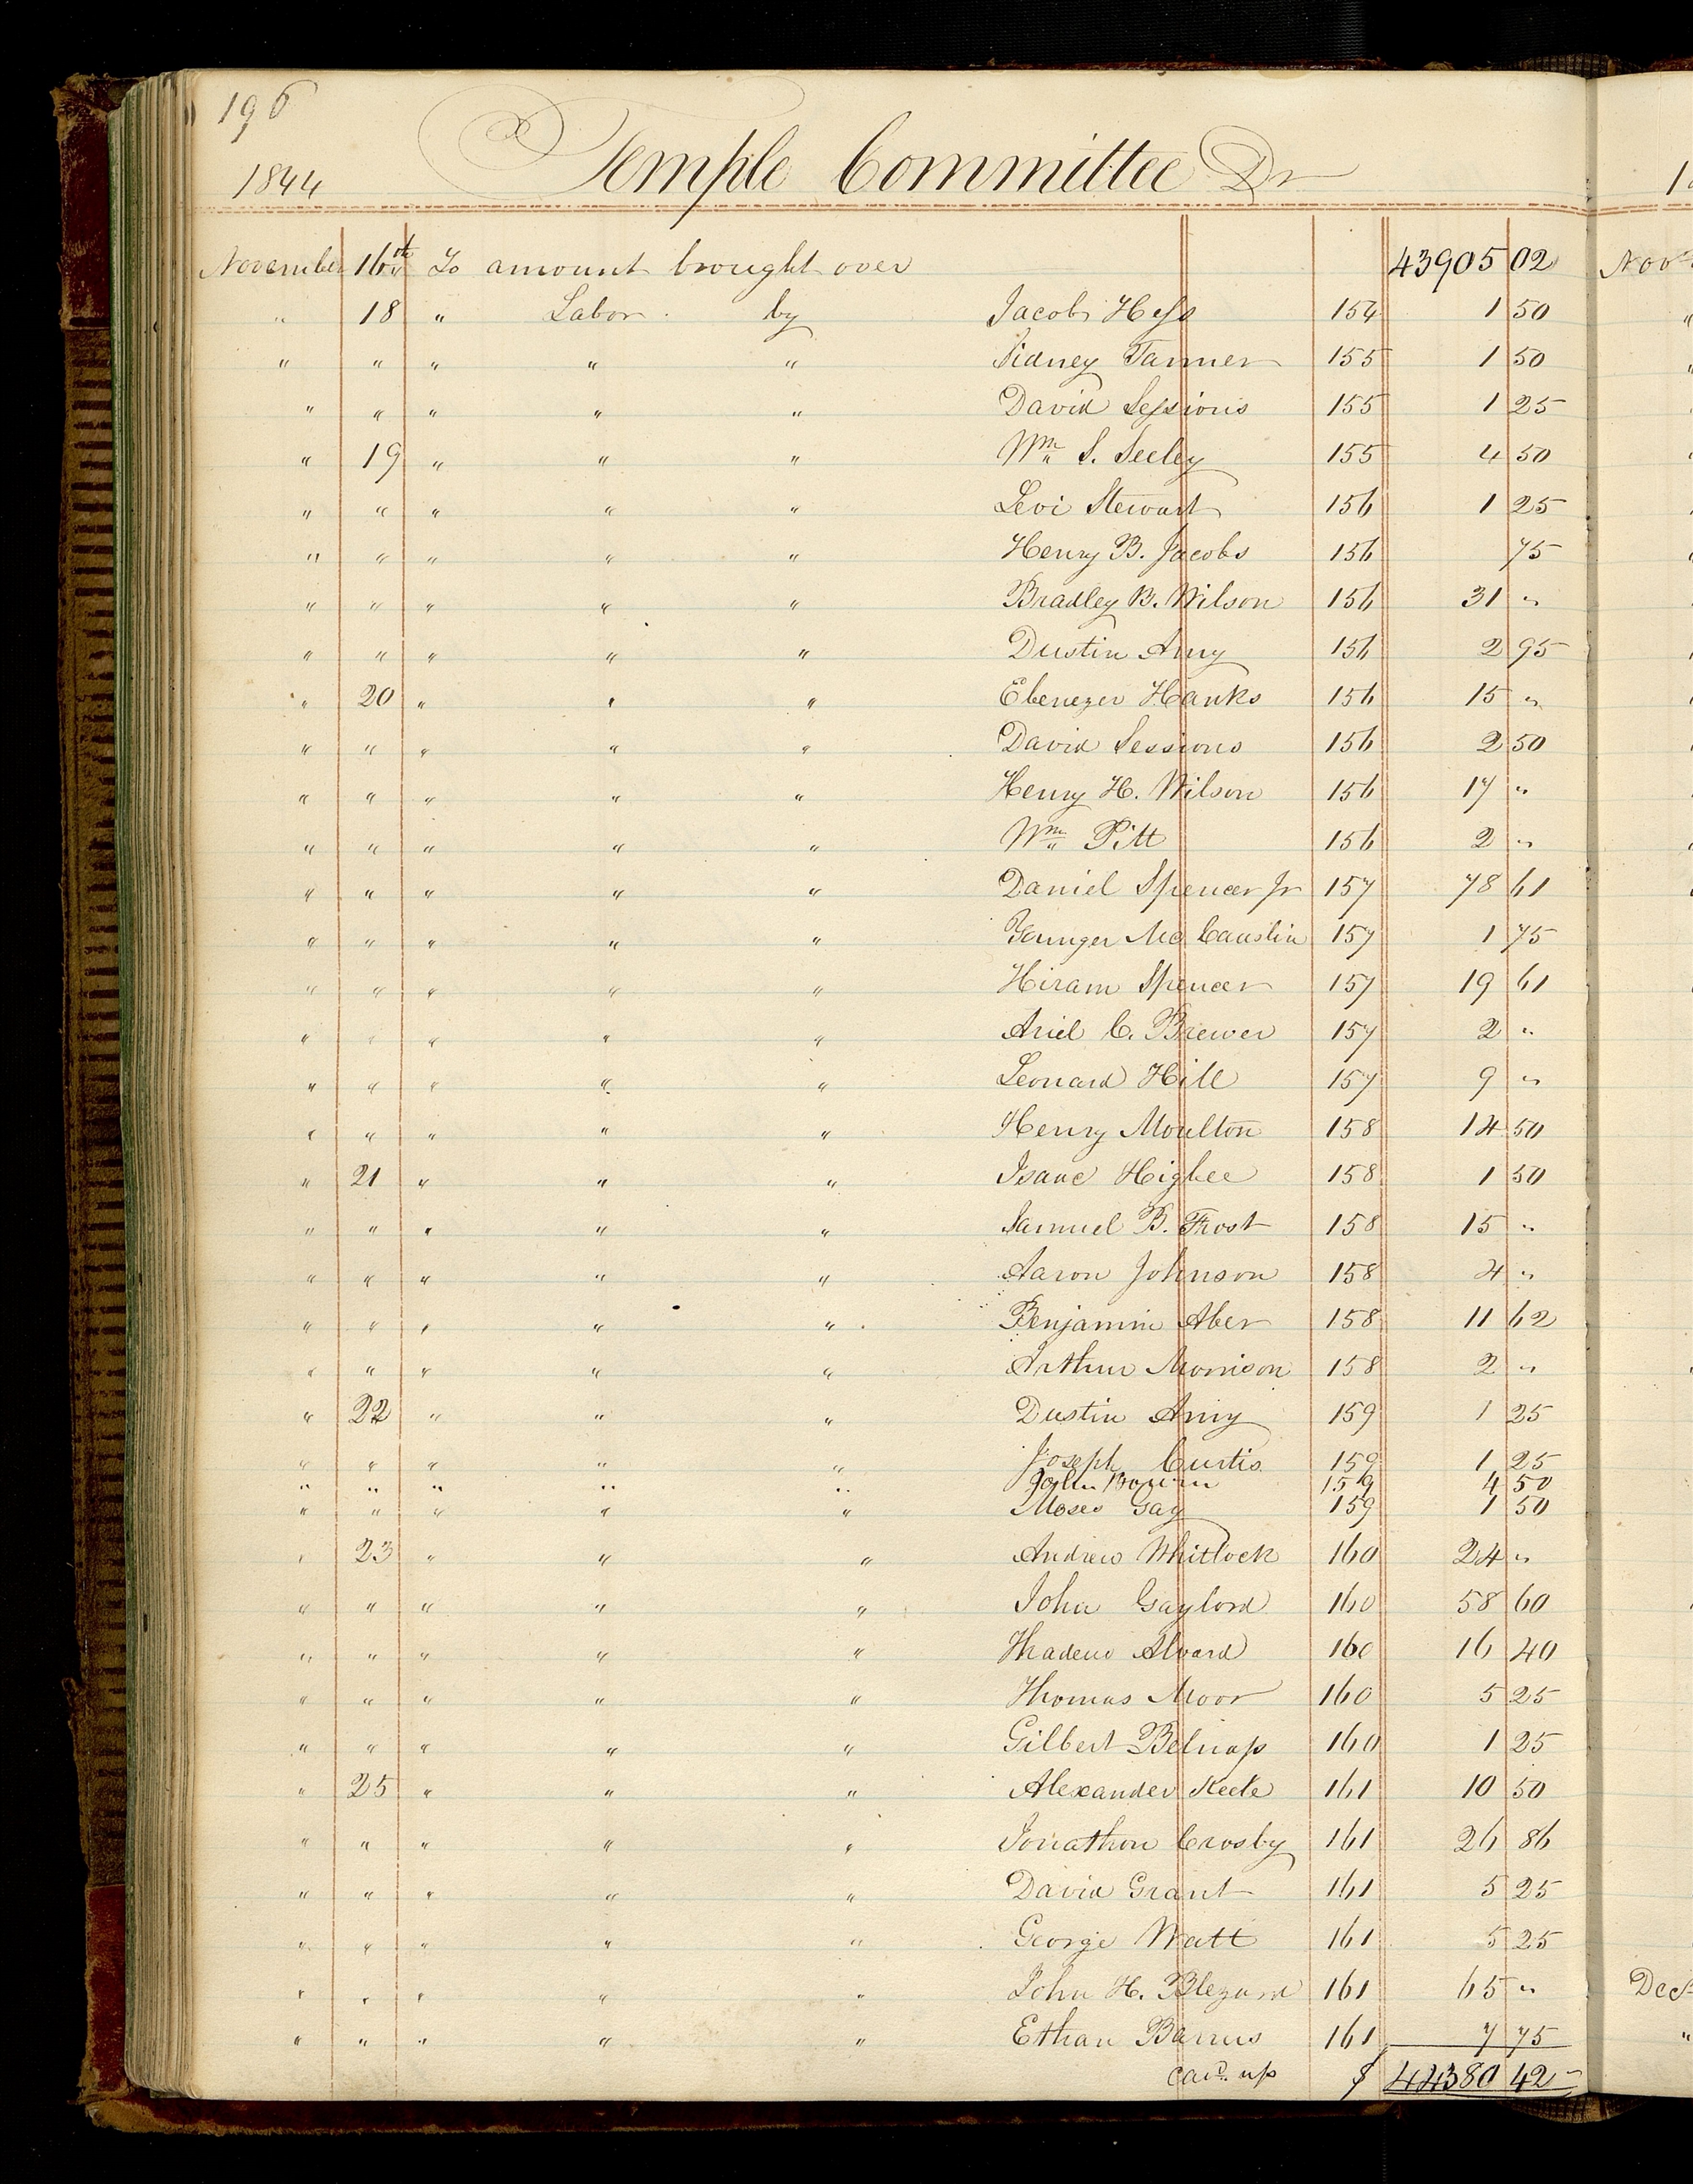 196
1844 Temple Committee Dr
November 16th To amount brought over 43905 02
" 18 " Labor by Jacob Hess 154 1 50
" " " " " Sidney Tanner 155 1 50
" " " " " David Sessions 155 1 25
" 19 " " " Wm S. Seeley 155 4 50
" " " " " Levi Stewart 156 1 25
" " " " " Henry B. Jacobs 156 75
" " " " " Bradley B. Wilson 156 31 "
" " " " " Dustin Amy 156 2 95
" 20 " " " Ebenezer Hanks 156 15 "
" " " " " David Sessions 156 2 50
" " " " " Henry H. Wilson 156 17 "
" " " " " Wm Pitt 156 2 "
" " " " " Daniel Spencer Jr 157 78 61
" " " " " Younger Mc Causlin 157 1 75
" " " " " Hiram Spencer 157 19 61
" " " " " Ariel C. Brewer 157 2 "
" " " " " Leonard Hill 157 9 "
" " " " " Henry Moulton 158 14 50
" 21 " " " Isaac Higbee 158 1 50
" " " " " Samuel B. Frost 158 15 "
" " " " " Aaron Johnson 158 4 "
" " " " " Benjamin Aber 158 11 62
" " " " " Arthur Morrison 158 2 "
" 22 " " " Dustin Amy 159 1 25
" " " " " Joseph Curtis 159 1 25
" " " " " John 159 4 50
" " " " " Moses Gay 159 1 50
" 23 " " " Andrew Whitlock 160 24 "
" " " " " John Gaylord 160 58 60
" " " " " Thadeus Alvord 160 16 40
" " " " " Thomas Moor 160 5 25
" " " " " Gilbert Belnap 160 1 25
" 25 " " " Alexander 161 10 50
" " " " " Jonathon Crosby 161 26 86
" " " " " David Grant 161 5 25
" " " " " George Watt 161 5 25
" " " " " John H. Blezard 161 65 "
" " " " " Ethan Barrus 161 7 75
card. up $ 44380 42
Nov
Dec